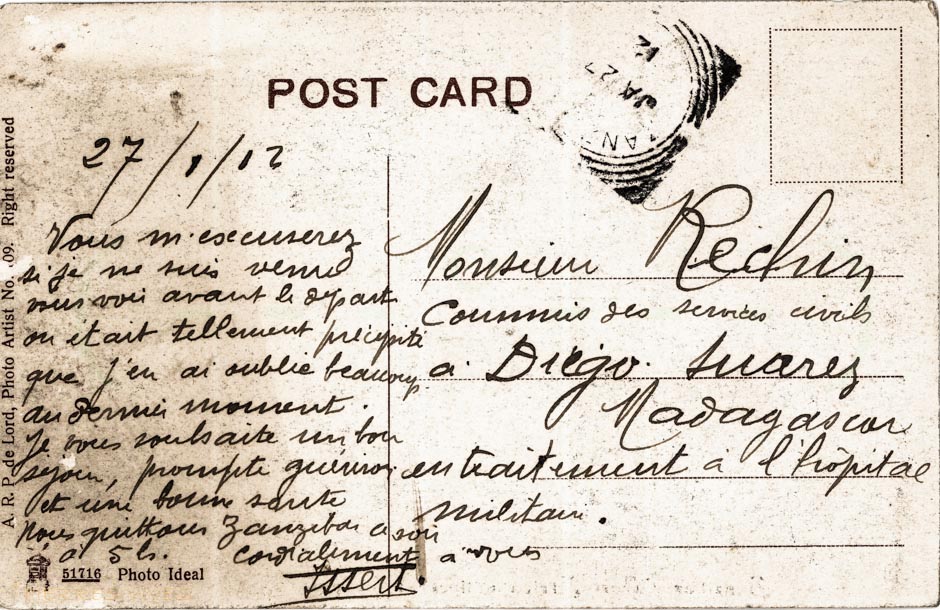 POST CARD
JA 27
12
27/1/12
Vous m'excuserez
si je ne suis venu
vous voir avant le départ
on était tellement précipité
que j'en ai oublié beaucoup
au dernier moment.
Je vous souhaite un bon
sejour, prompte guérison
et une bonne santé
Nous quittons Zanzibar ce soir
à 5 h. cordialement à vous
Issert.
Monsieur Rechin
Commis des services civils
à Diégo. Suarez
Madagascar
en traitement à l'hôpital
militaire.
A. R. P. de Lord, Photo Artist No. 09. Right reserved
51716 Photo Ideal